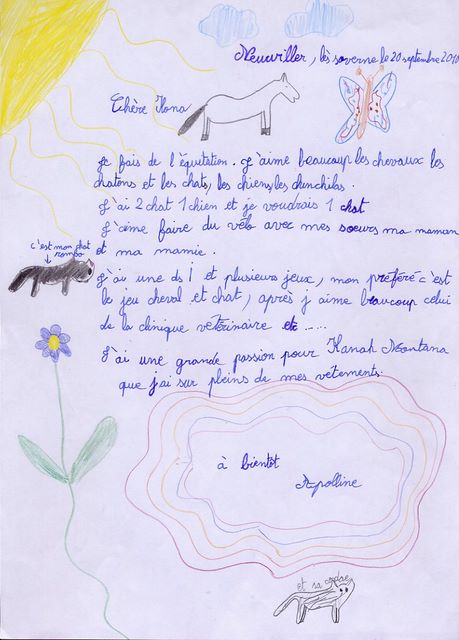 Neuwiller, lès saverne le 20 septembre 2010
Chère Ilona
Je fais de l'équitation. J'aime beaucoup les chevaux les
chatons et les chats, les chiens, les chinchilas.
J'ai 2 chat 1 chien et je voudrais 1 chat
J'aime faire du vélo avec mes soeurs ma maman
et ma mamie.
c'est mon chat
rombo
J'ai une ds i et plusieurs jeux, mon préféré c'est
le jeu cheval et chat, après j'aime beaucoup celui
de la clinique vétérinaire etc .....
J'ai une grande passion pour Hanah Montana
que j'ai sur pleins de mes vetements.
à bientôt
Apolline
et sa